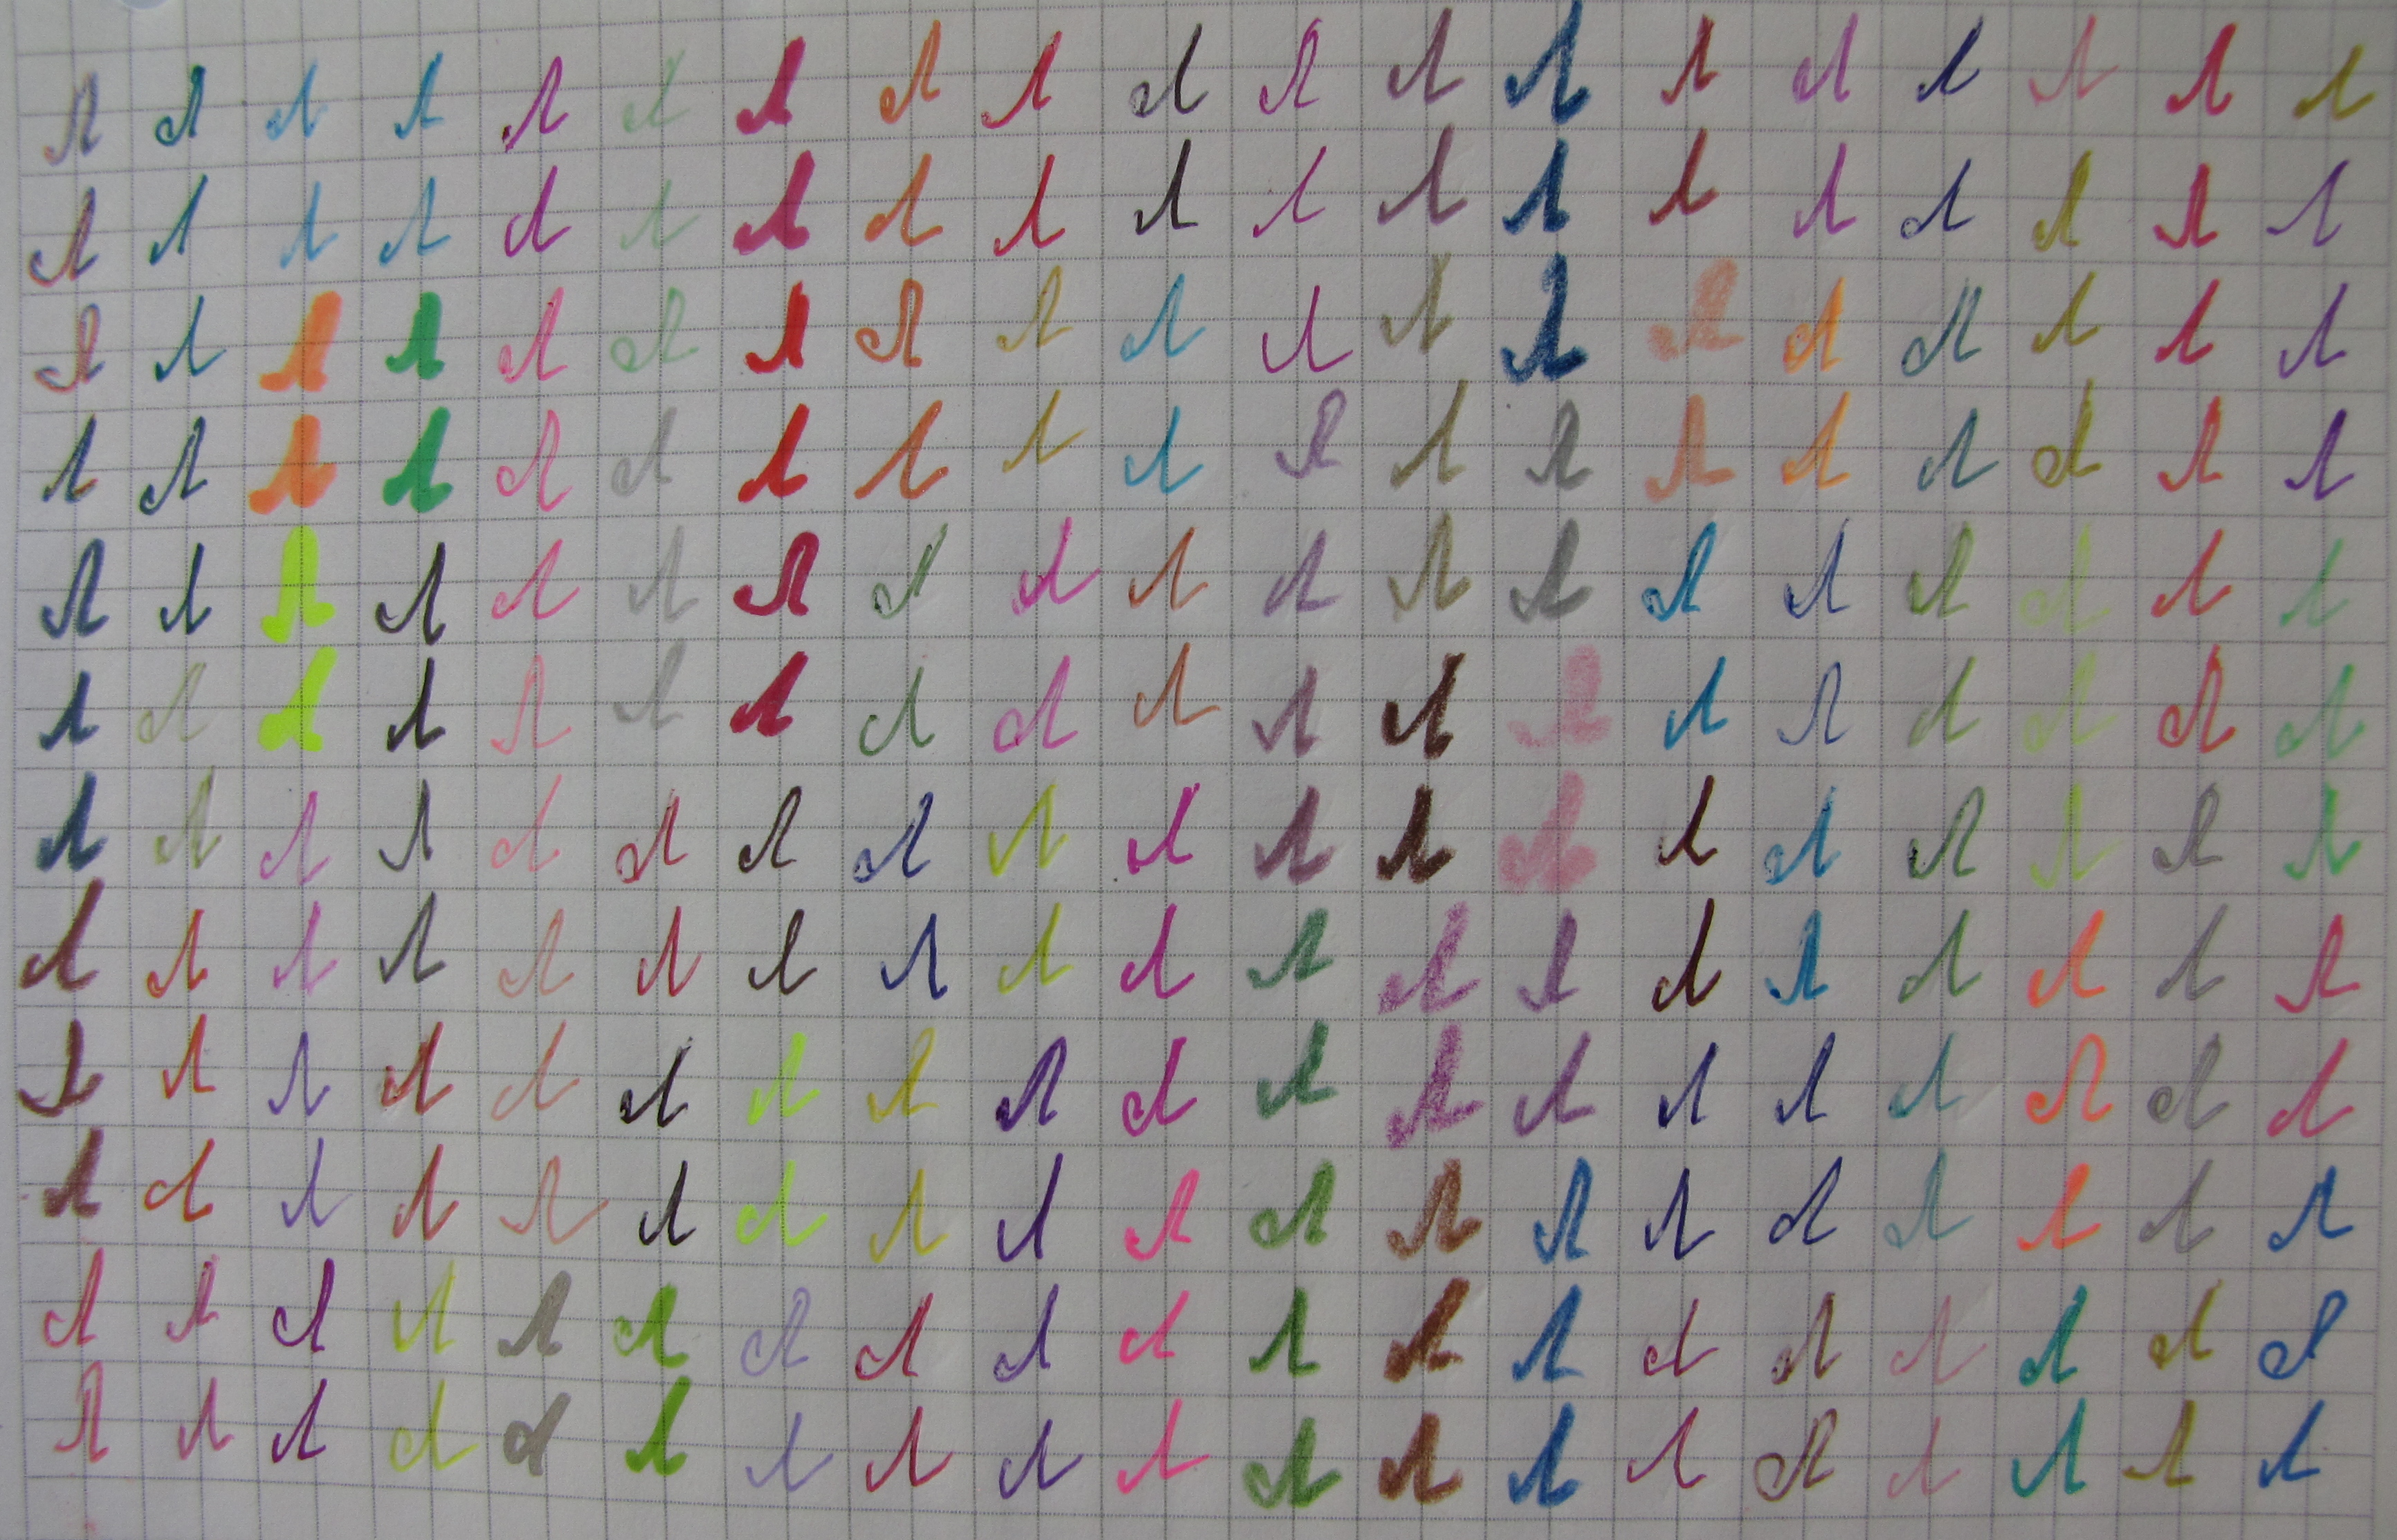 Л Л Л Л Л Л Л Л Л Л Л Л Л Л Л Л Л Л Л
Л Л Л Л Л Л Л Л Л Л Л Л Л Л Л Л Л Л Л
Л Л Л Л Л Л Л Л Л Л Л Л Л Л Л Л Л Л Л
Л Л Л Л Л Л Л Л Л Л Л Л Л Л Л Л Л Л Л
Л Л Л Л Л Л Л Л Л Л Л Л Л Л Л Л Л Л Л
Л Л Л Л Л Л Л Л Л Л Л Л Л Л Л Л Л Л Л
Л Л Л Л Л Л Л Л Л Л Л Л Л Л Л Л Л Л Л
Л Л Л Л Л Л Л Л Л Л Л Л Л Л Л Л Л Л Л
Л Л Л Л Л Л Л Л Л Л Л Л Л Л Л Л Л Л Л
Л Л Л Л Л Л Л Л Л Л Л Л Л Л Л Л Л Л Л
Л Л Л Л Л Л Л Л Л Л Л Л Л Л Л Л Л Л Л
Л Л Л Л Л Л Л Л Л Л Л Л Л Л Л Л Л Л Л